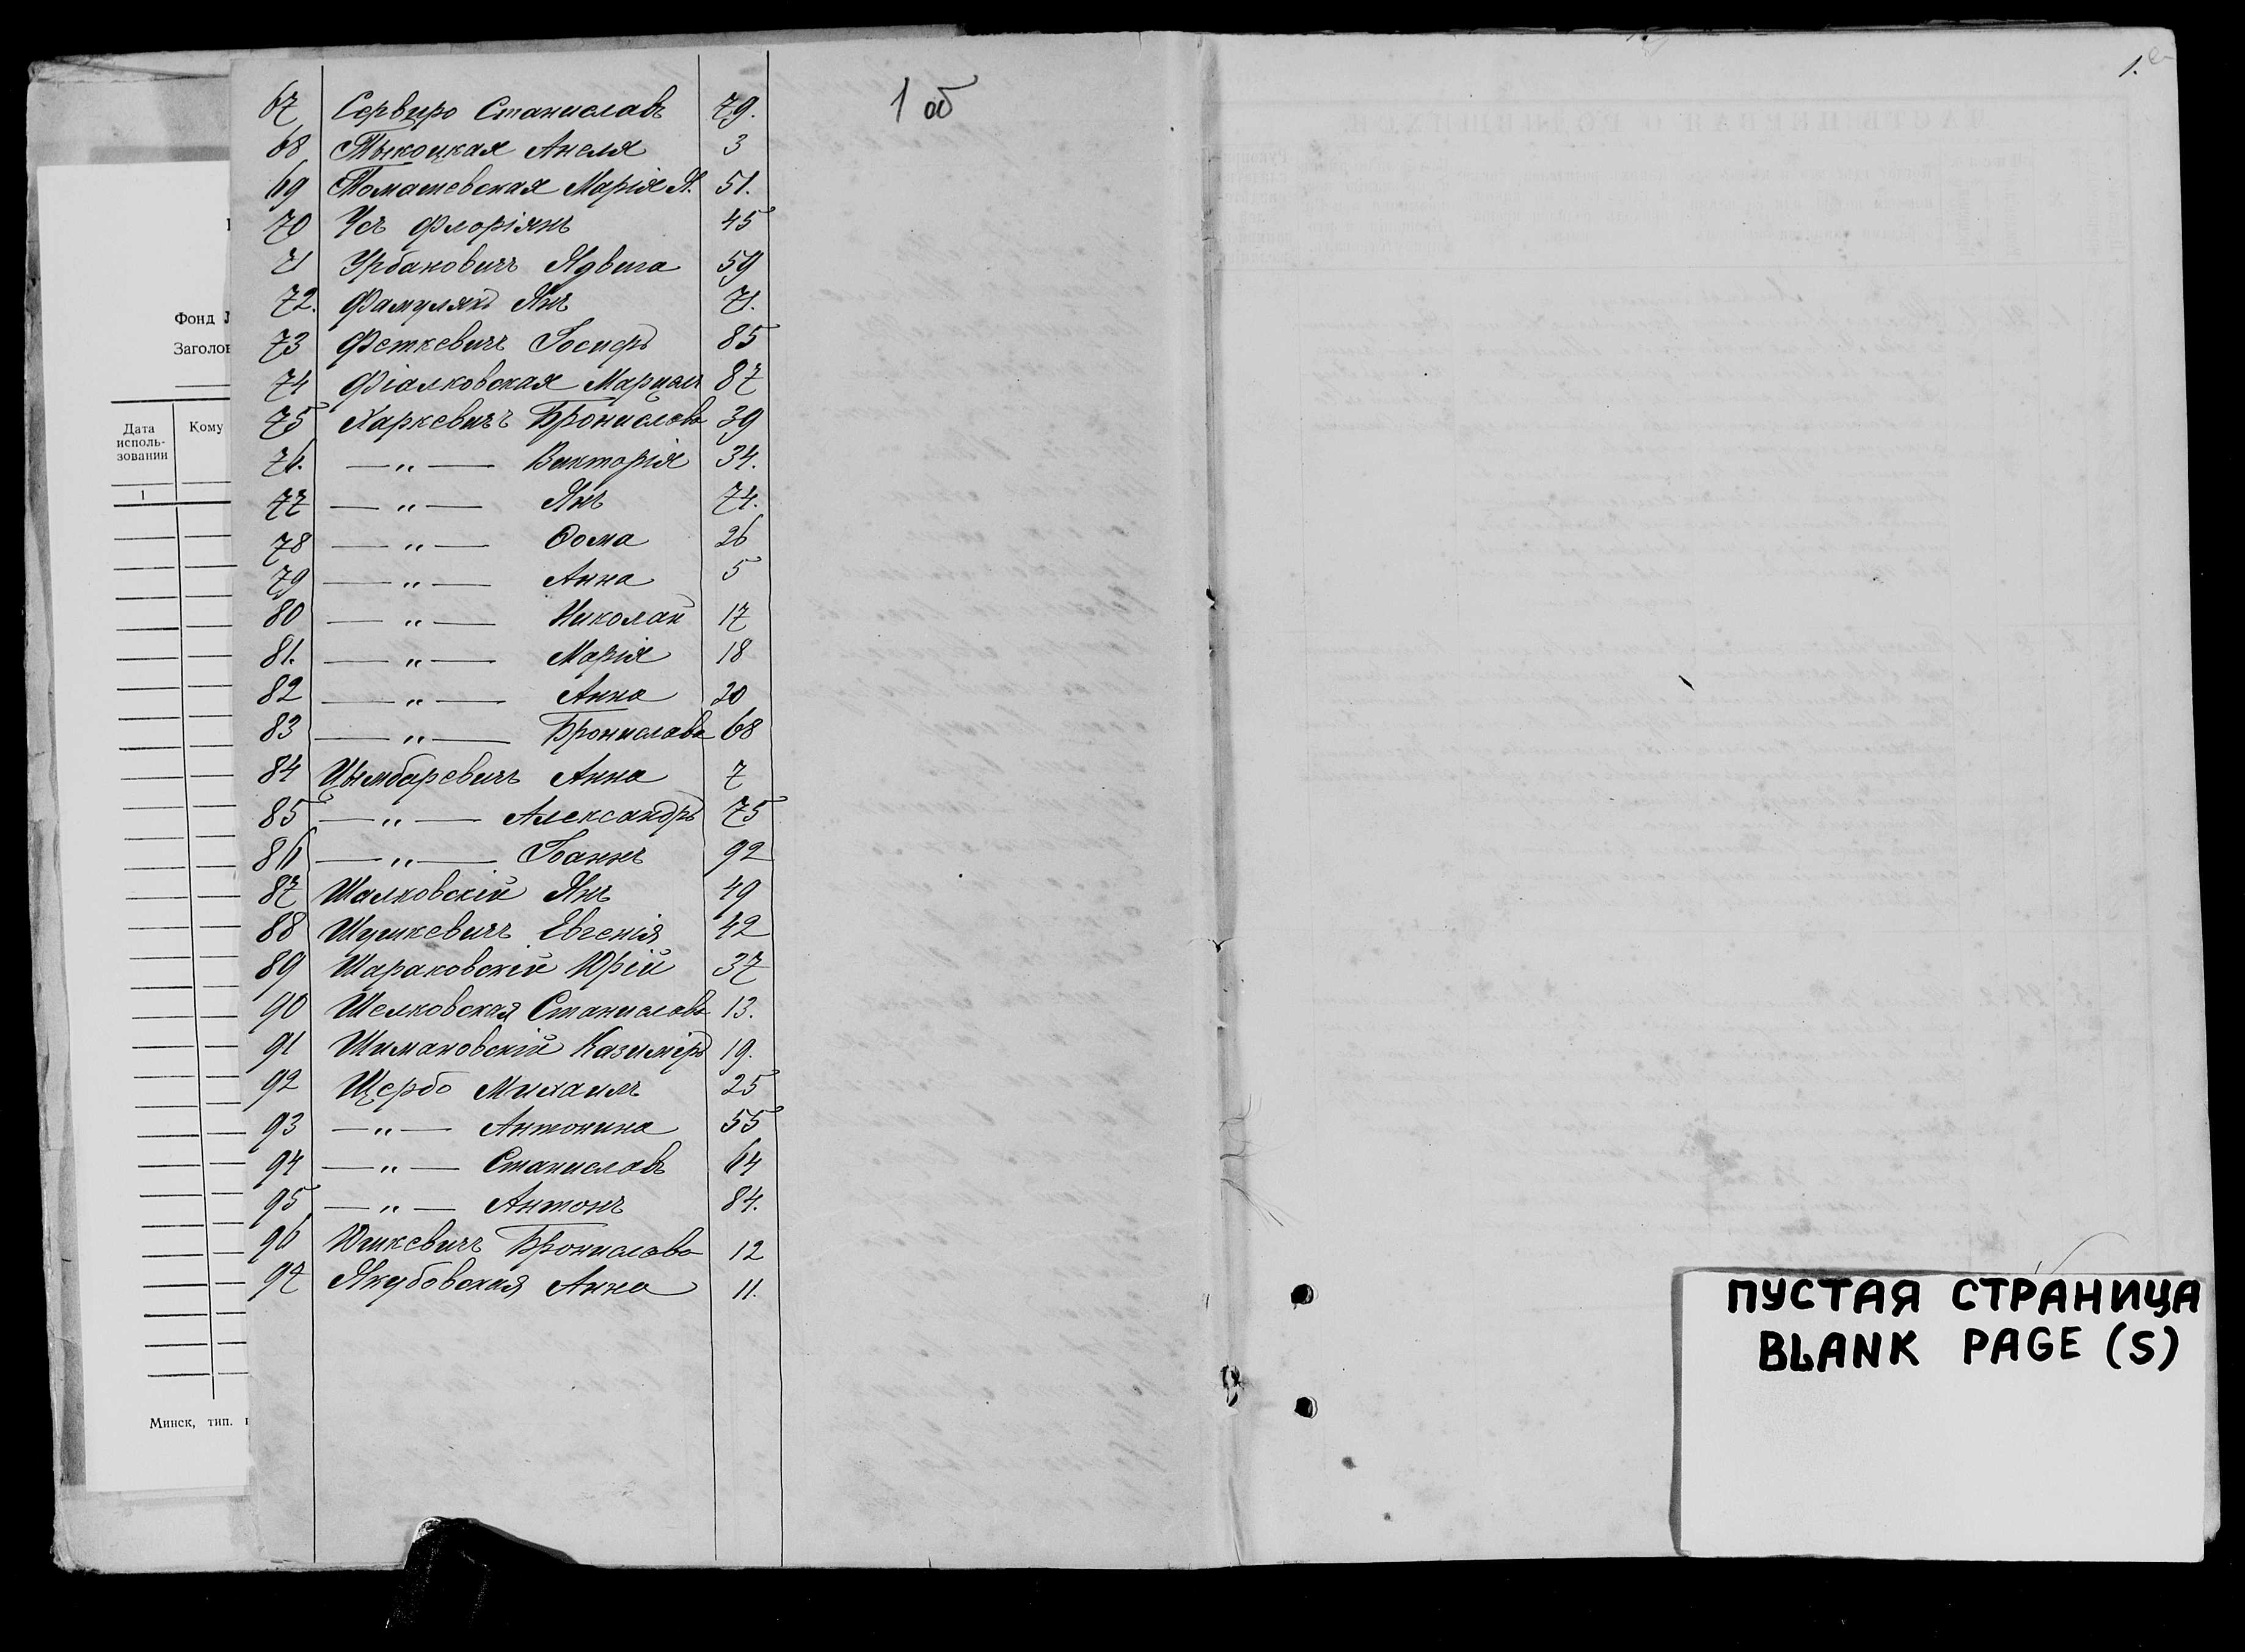 1 об
67 Сервиро Станиславъ 79.
68 Тыкоцкая Анеля 3
69 Томашевская Марія А. 51.
70 Усъ Флоріянъ 45
71 Урбановичъ Ядвига 59
72. Фамулякъ Янъ 71.
73 Феткевичъ Іосифъ 85
74 Фіалковская Марцеля 87
75 Харкевичъ Брониславъ 39
76. — „ — Викторія 34.
77 — „ — Янъ 74.
78 — „ — Ѳома 26
79 — „ — Анна 5
80 — „ — Николай 17
81. — „ — Марія 18
82 — „ — Анна 20
83 — „ — Бронислава 68
84 Цымбаревичъ Анна 7
85 — „ — Александръ 75
86 — „ — Іоаннъ 92
87 Шалковскій Янъ 49
88 Шушкевичъ Евгенія 42
89 Шараковскій Юрій 37
90 Шелковская Станислава 13.
91 Шимановскій Казиміръ 19.
92 Щербо Михаилъ 25
93 — „ — Антонина 55
94 — „ — Станиславъ 64
95 — „ — Антонъ 84.
96 Юшкевичъ Бронислава 12
97 Якубовская Анна 11.
Фонд
Заголов
Дата исполь-
зовании
Кому
1
Минск, тип.
1.
ПУСТАЯ СТРАНИЦА
BLANK PAGE (S)